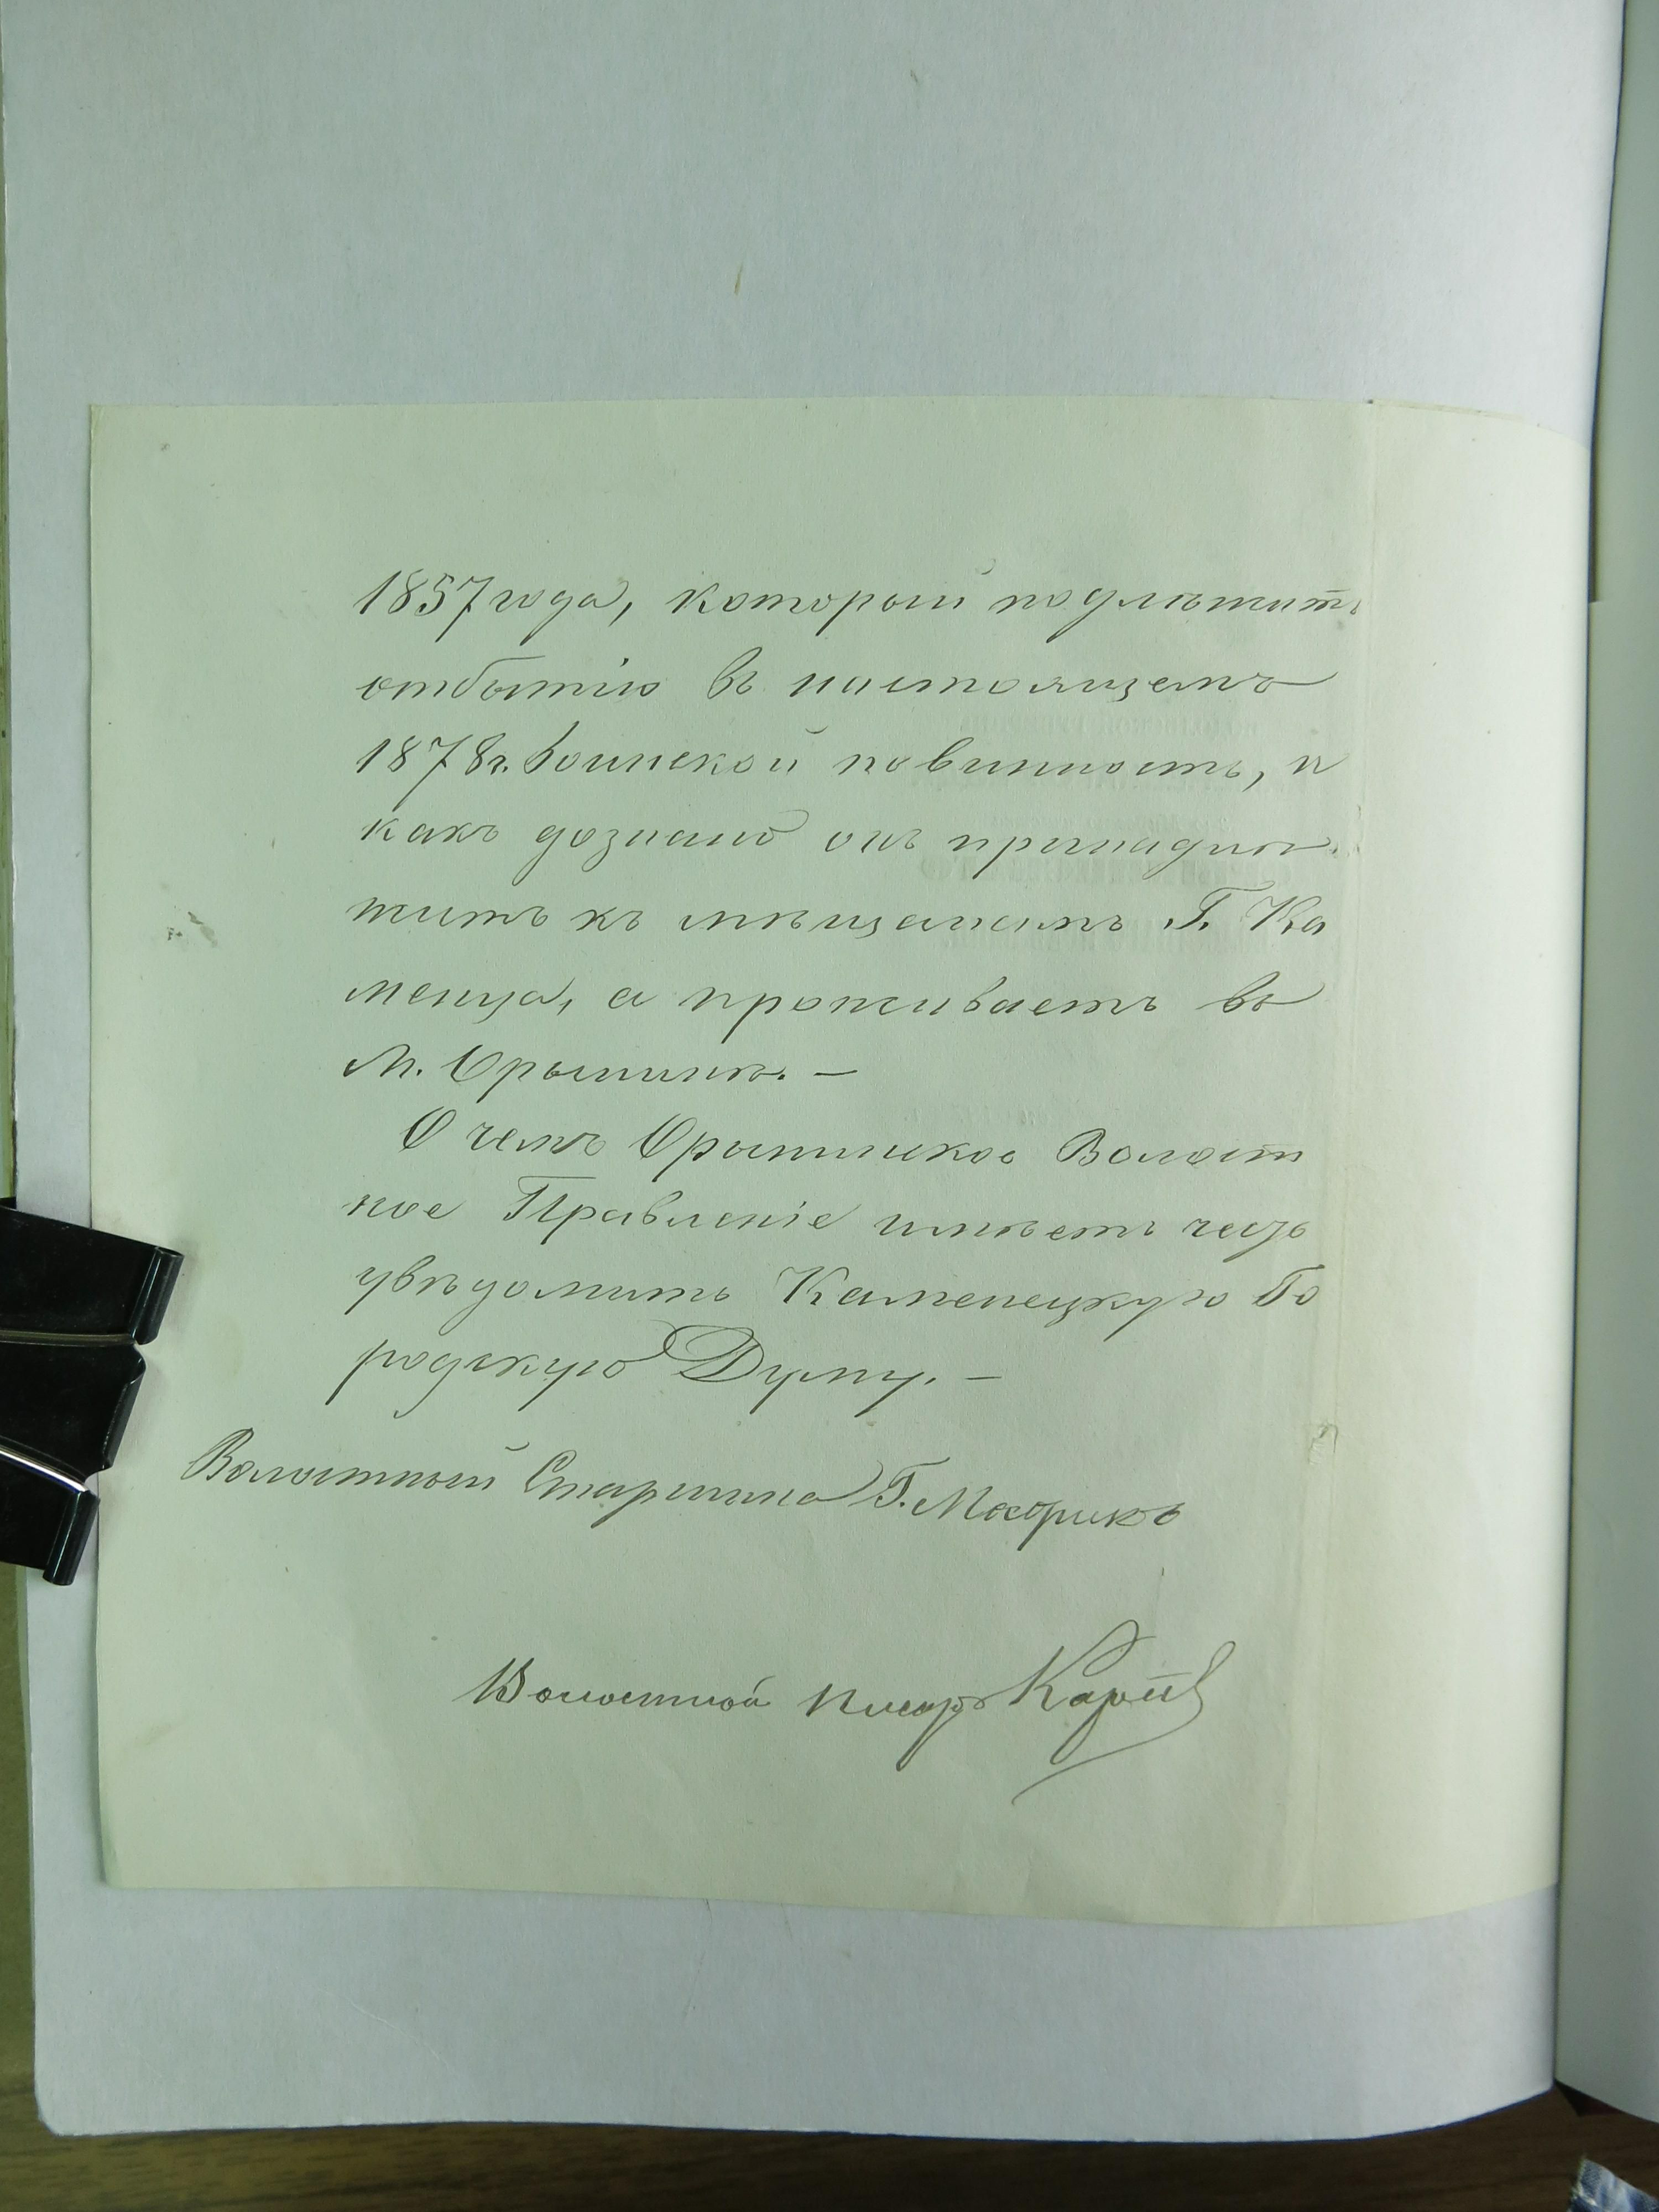 1857 года, который подлежитъ
отбытію въ настоящемъ
1878 г. воинской повинность, и
какъ дознано онъ принадле
житъ къ мѣщанамъ Г. Ка
менца, а проживаетъ въ
М. Орынинѣ. —
О чемъ Орынинское Волост
ное Правленіе имѣетъ честь
увѣдомить Каменецкую Го
родскую Думу. —
Волостный Старшина Г.
Волостной Писарь